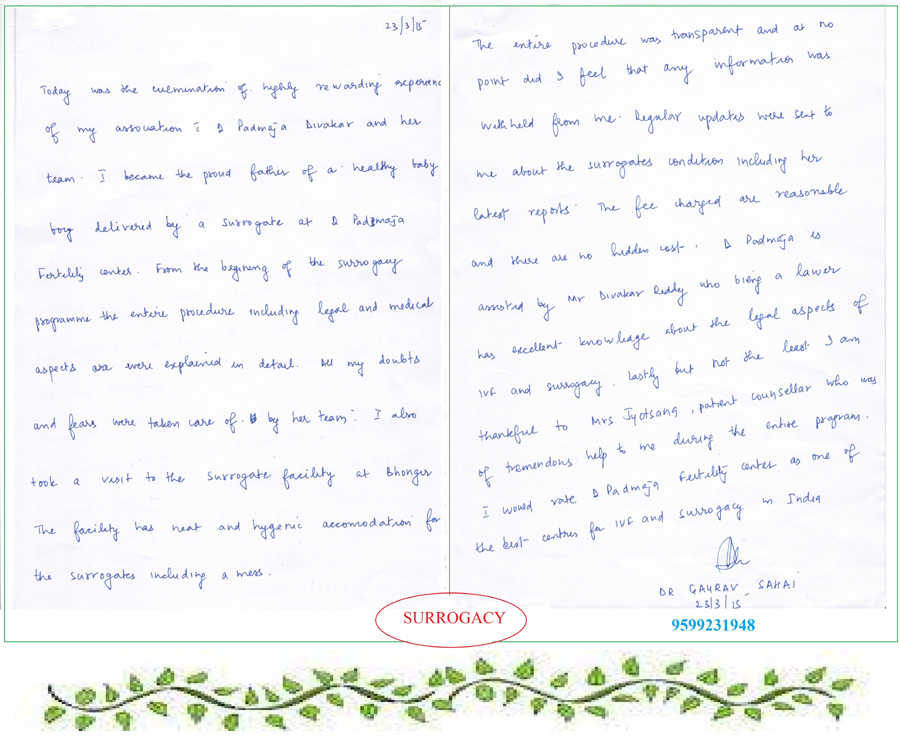 23/3/15
Today was the culmination of highly rewarding experienc
of my association c̄ D Padmaja Divakar and her
team. I became the proud father of a healthy baby
boy delivered by a surrogate at D Padmaja
Fertility center. From the begining of the surrogacy
programme the entire procedure including legal and medical
aspects are were explained in detail. All my doubts
and fears were taken care of by her team. I also
took a visit to the surrogate facility at Bhongir
The facility has neat and hygenic accomodation for
the surrogates including a mess.
The entire procedure was transparent and at no
point did I feel that any information was
withheld from me. Regular updates were sent to
me about the surrogates condition including her
latest reports. The fee charged are reasonable
and there are no hidden cost. D Padmaja is
assisted by Mr Divakar Reddy who being a lawer
has excellent knowledge about the legal aspects of
IVF and surrogacy. Lastly but not the least I am
thankful to Mrs Jyotsana, patient counsellar who was
of tremendous help to me during the entire program.
I would rate D Padmaja Fertility center as one of
the best centres for IVF and surrogacy in India
DR GAURAV SAHAI
23/3/15
SURROGACY
9599231948